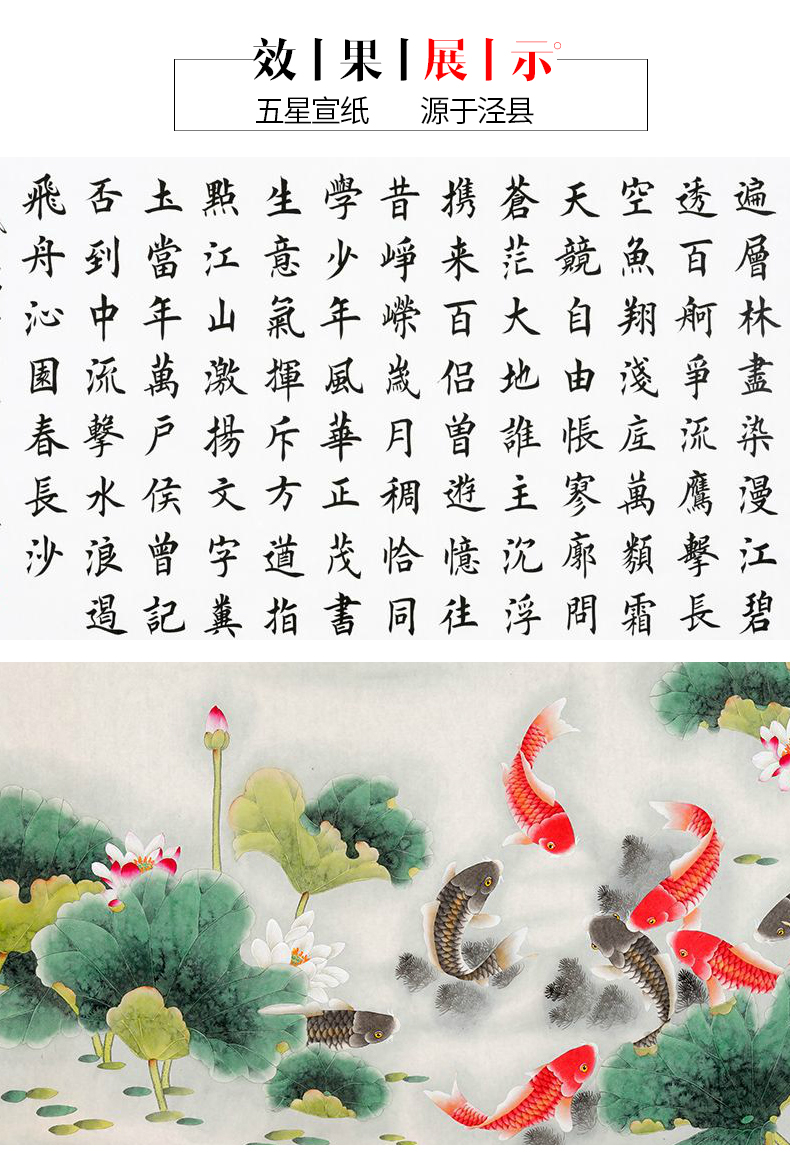 效果展示
五星宣纸 源于泾县
遍層林盡染漫江碧
透百舸爭流鷹擊長
空魚翔淺底萬類霜
天競自由悵寥廓問
蒼茫大地誰主沉浮
携来百侣曾遊憶往
昔崢嶸歲月稠恰同
學少年風華正茂書
生意氣揮斥方遒指
點江山激揚文字糞
土當年萬户侯曾記
否到中流擊水浪遏
飛舟沁園春長沙